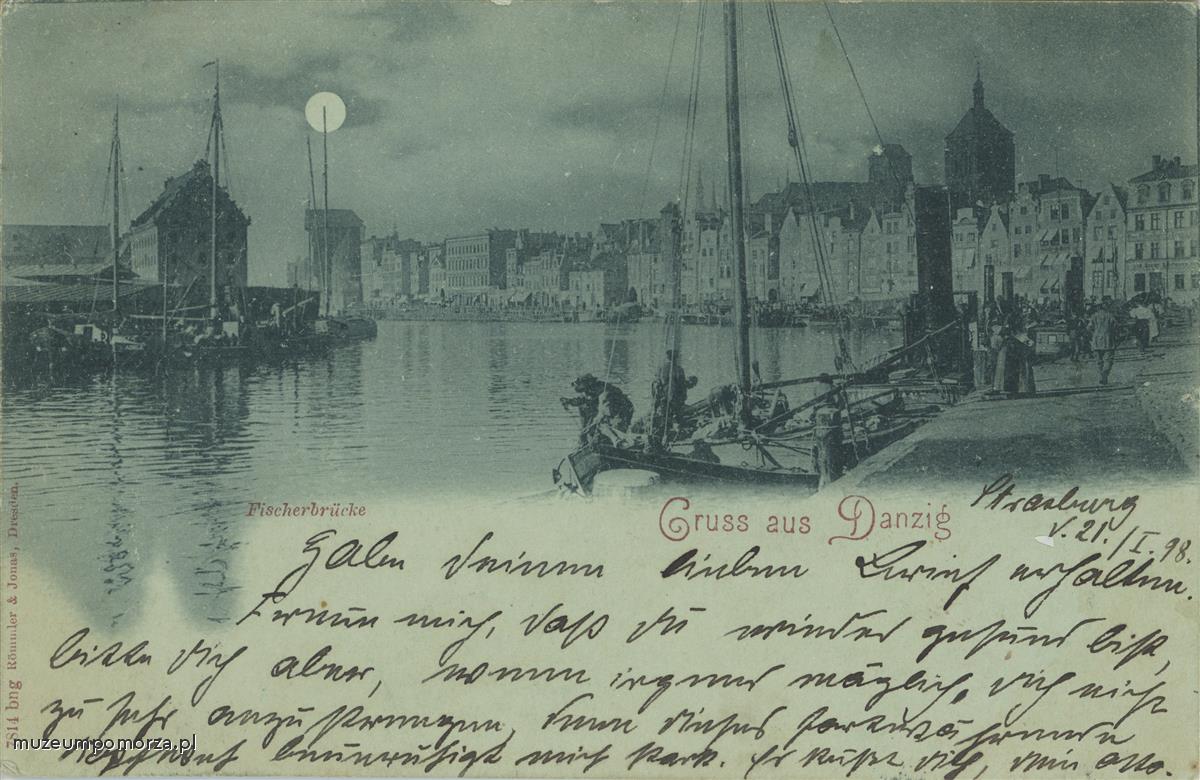 Fischerbrücke
Gruss aus Danzig
Strasburg
d. 21./I. 98.
Habe deinen lieben Brief erhalten.
Freue mich, daß du wieder gesund bist,
bitte dich aber, wenn irgend möglich, dich nicht
zu sehr anzustrengen, denn dieses fortwährende
beunruhigt mich stark. Es küßt dich, dein Otto.
7814 bng Römmler & Jonas, Dresden.
muzeumpomorza.pl